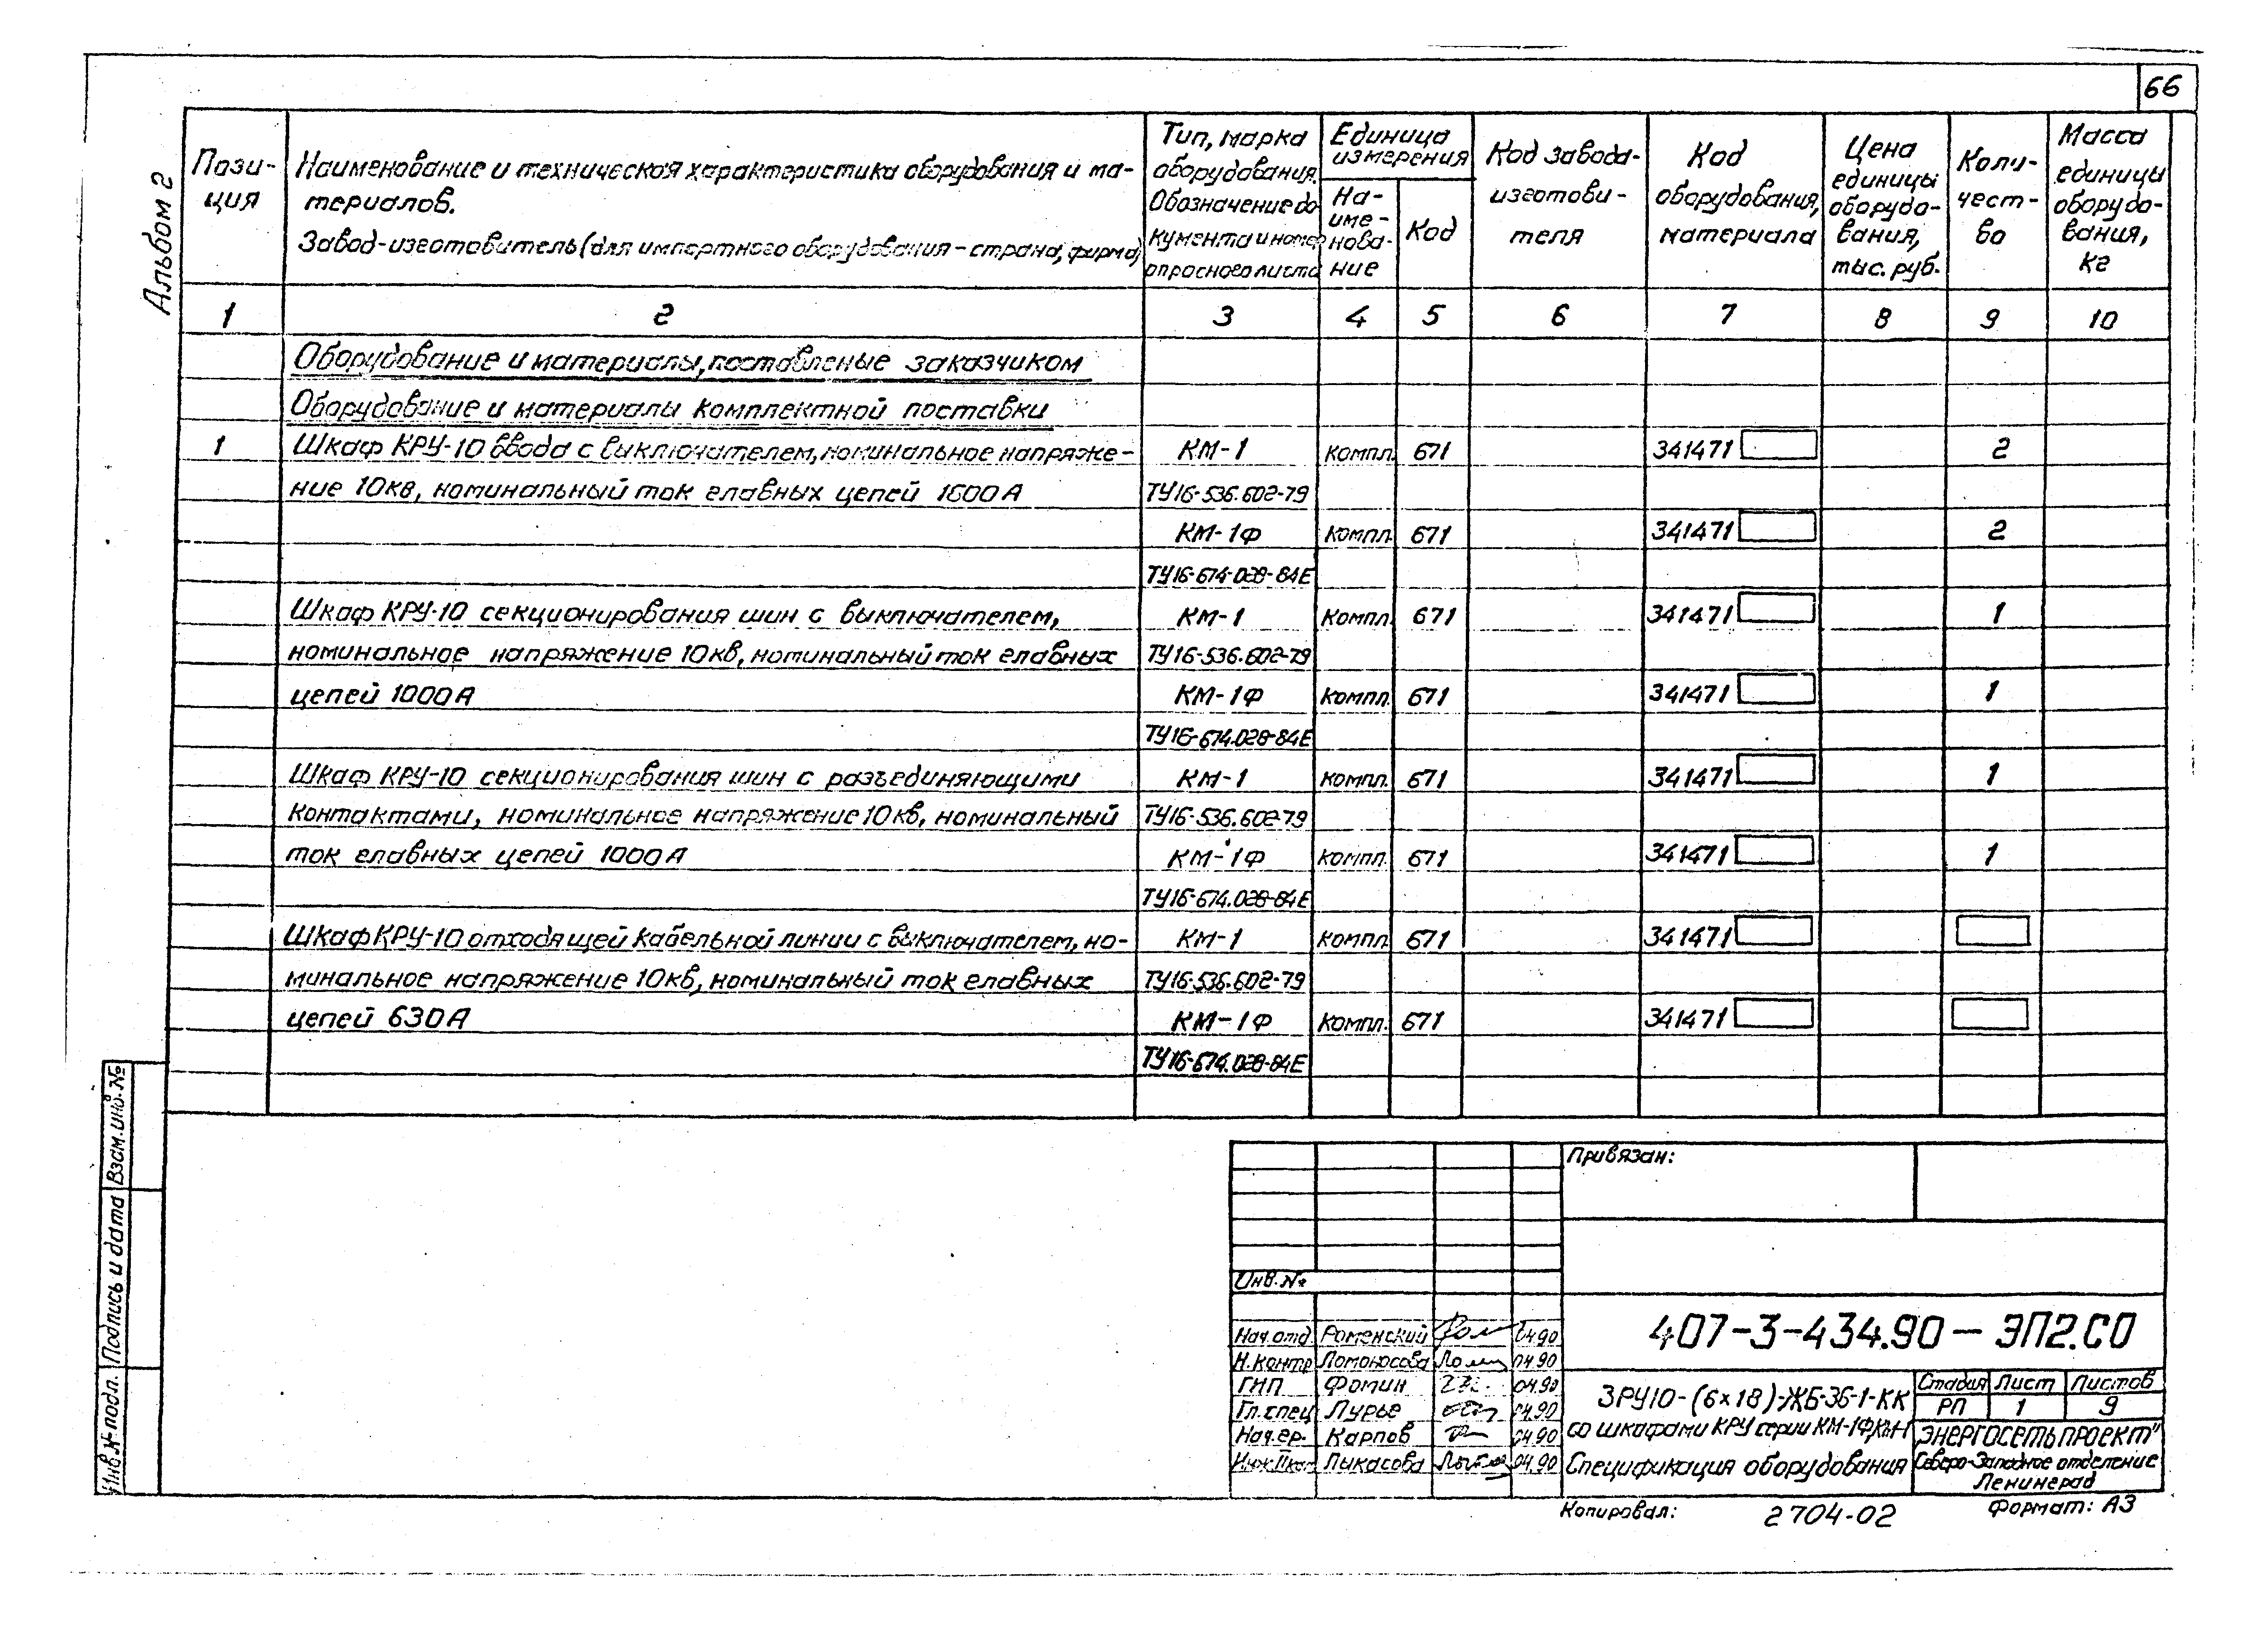 66
Альбом 2
Пози-
ция
Наименование и техническая характеристика оборудования и ма-
териалов.
Завод-изготовитель (для импортного оборудования - страна, фирма)
Тип, марка
оборудования.
Обозначение до-
кумента и номер
опросного листа
Единица
измерения
На-
име-
нова-
ние
Код
Код завода-
изготови-
теля
Код
оборудования,
материала
Цена
единицы
оборудо-
вания,
тыс. руб.
Коли-
чест-
во
Масса
единицы
оборудо-
вания,
кг
1 2 3 4 5 6 7 8 9 10
Оборудование и материалы, поставленые заказчиком
Оборудование и материалы комплектной поставки
1 Шкаф КРУ-10 ввода с выключателем, номинальное напряже- КМ-1 компл. 671 341471 2
ние 10кв, номинальный ток главных цепей 1600А ТУ16-536.602-79
КМ-1Ф компл. 671 341471 2
ТУ16-674-028-84Е
Шкаф КРУ-10 секционирования шин с выключателем, КМ-1 компл. 671 341471 1
номинальное напряжение 10кв, номинальный ток главных ТУ16-536.602-79
цепей 1000А КМ-1Ф компл. 671 341471 1
ТУ16-674.028-84Е
Шкаф КРУ-10 секционирования шин с разъединяющими КМ-1 компл. 671 341471 1
контактами, номинальное напряжение 10кв, номинальный ТУ16-536.602-79
ток главных цепей 1000А КМ-1Ф компл. 671 341471 1
ТУ16-674.028-84Е
Шкаф КРУ-10 отходящей кабельной линии с выключателем, но- КМ-1 компл. 671 341471
минальное напряжение 10кв, номинальный ток главных ТУ16-536.602-79
цепей 630А КМ-1Ф компл. 671 341471
ТУ16-674.028-84Е
Взам. инв. №
Подпись и дата
Инв. № подл.
Привязан:
Инв. №
Нач. отд. Роменский 04.90
Н. контр. Ломоносова 04.90
ГИП Фомин 04.90
Гл. спец. Лурье 04.90
Нач. гр. Карпов 04.90
Пыкасова 04.90
407-3-434.90 - ЭП2.СО
ЗРУ10-(6×18)-ЖБ-36-1-КК
со шкафами КРУ серии КМ-1Ф,
Спецификация оборудования
Стадия Лист Листов
РП 1 9
ЭНЕРГОСЕТЬПРОЕКТ"
Северо-Западное отделение
Ленинград
Копировал: 2704-02 Формат: А3